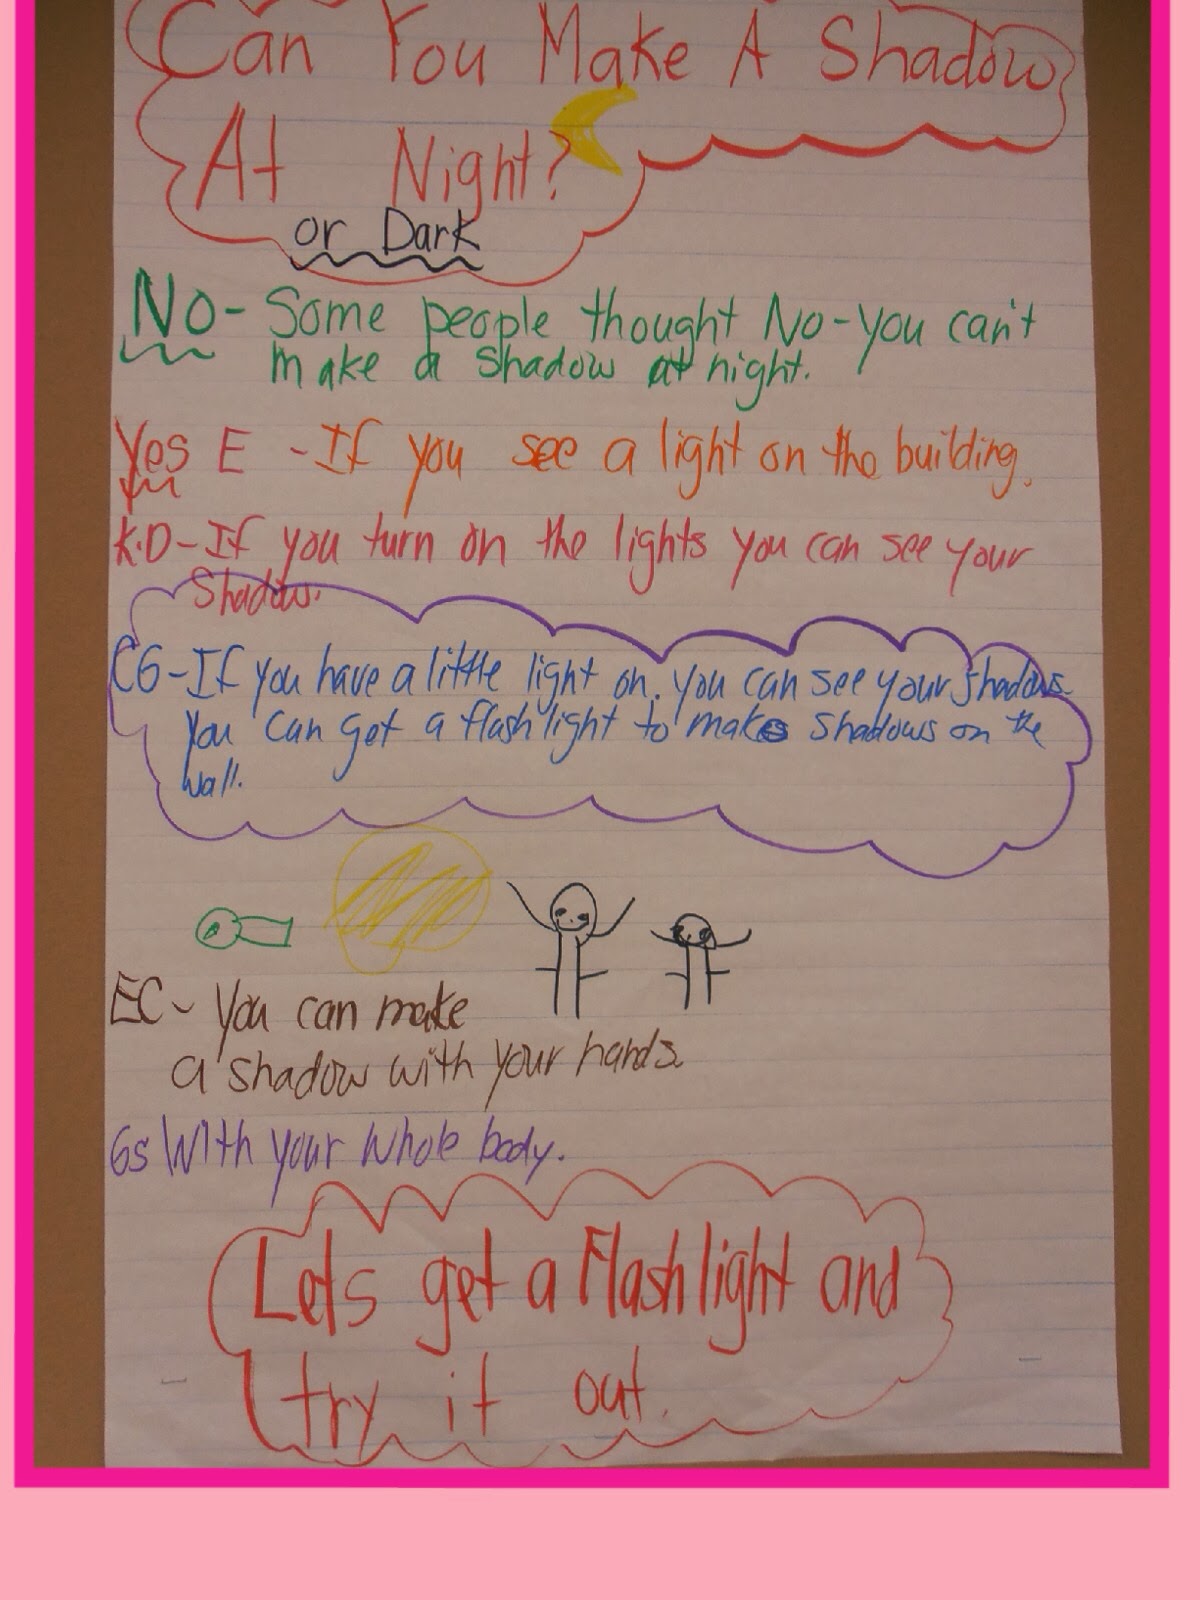 Can You Make A Shadow
At Night?
or Dark
No- Some people thought No-you can't
make a shadow at night.
Yes E -If you see a light on the building.
K.D-If you turn on the lights you can see your
Shadow.
CG-If you have a little light on. you can see your shadows.
You can get a flashlight to make shadows on the
wall.
EC- You can make
a shadow with your hands.
Gs With your whole body.
Lets get a Flashlight and
try it out.